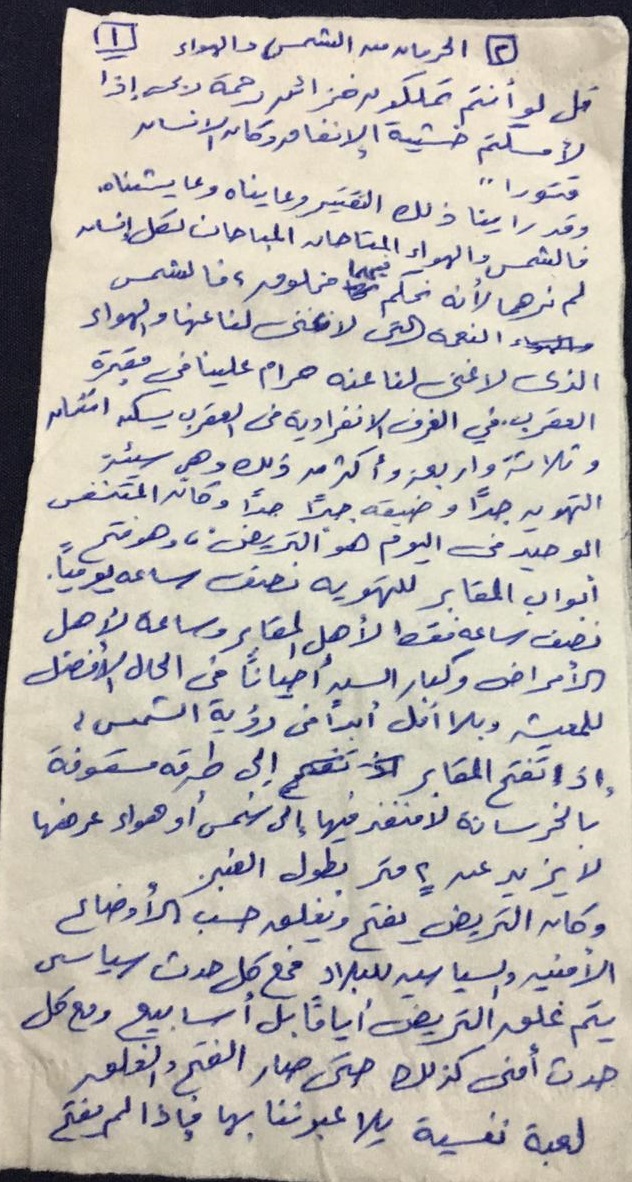 [٣] الحرمان من الشمس والهواء [١]
قل لو أنتم تملكون خزائن رحمة ربى إذا
لأمسكتم خشية الإنفاق وكان الإنسان
قتورا"
وقد رأينا ذلك التقتير وعايناه وعايشناه.
فالشمس والهواء المتاحان المباحان لكل إنسان
لم نرهما لأنه تحكم فيهما مخلوق، فالشمس
النعمة التى لا غنى لنا عنها والهواء
الذى لا غنى لنا عنه حرام علينا فى مقبرة
العقرب، في الغرف الانفرادية فى العقرب يسكن اثنان
وثلاثة واربعة وأكثر من ذلك وهى سيئة
التهويه جدًا وضيقه جدًا جدًا وكان المتنفس
الوحيد فى اليوم هو "التريض"، وهو فتح
أبواب المقابر للتهويه نصف ساعه يومياً.
نصف ساعه فقط لأهل المقابر وساعة لأهل
الأمراض وكبار السن أحياناً فى الحال الأفضل
للمعيشه وبلا أمل أبداً فى رؤية الشمس،
إذا تفتح المقابر إلى طرقه مسقوفة
بالخرسانة لا منفذ فيها إلى شمس أو هواء عرضها
لا يزيد عن ٢ متر بطول العنبر
وكان التريض يفتح ويغلق حسب الأوضاع
الأمنيه والسياسيه للبلاد فمع كل حدث سياسى
يتم غلق التريض أياماً بل أسابيع ومع كل
حدث أمنى كذلك حتى صار الفتح والغلق
لعبة نفسية يلاعبوننا بها فإذا لم يفتح